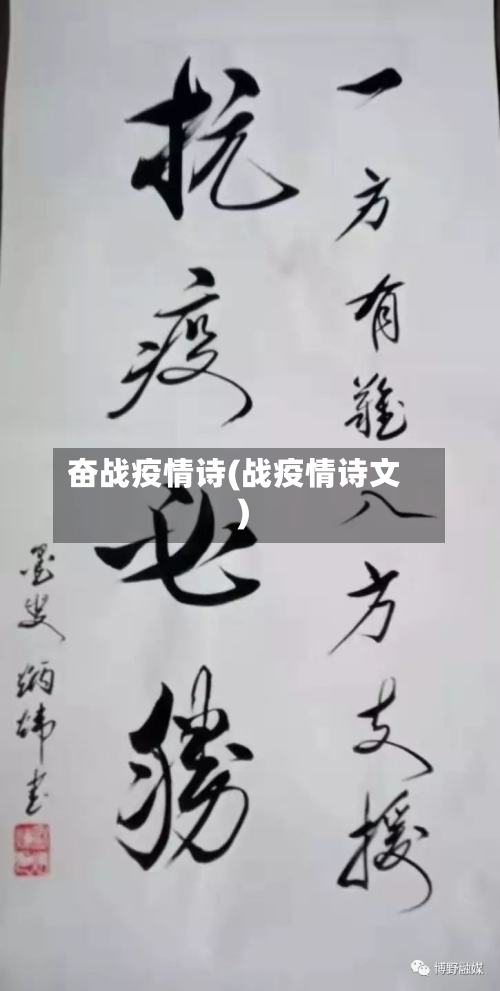 一方有難八方支援
抗疫必勝
墨叟炳韩书
奋战疫情诗(战疫情诗文
)
博野融媒